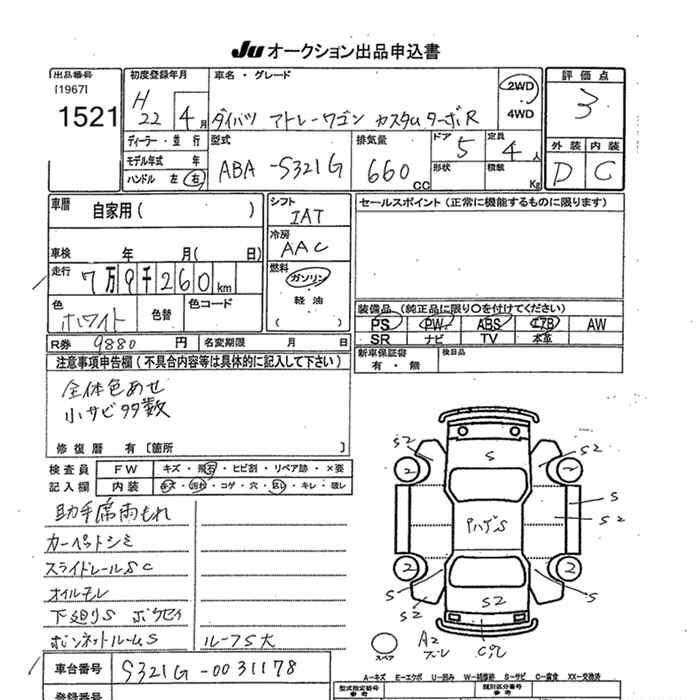 Ju オークション出品申込書
出品番号 初度登録年月 車名・グレード 評価点
[1967]
1521 H22 4月 ダイハツ アトレーワゴン カスタムターボR 2WD 4WD 3
ディーラー・並行 型式 排気量 ドア 定員 外装 内装
モデル年式 年 ABA-S321G 660CC 5 4人 D C
ハンドル 左 右 形状 積載 Kg
車暦 自家用( ) シフト IAT セールスポイント (正常に機能するものに限ります)
冷房 AAC
車検 年 月( 日)
走行 7万9千260km 燃料 ガソリン
軽油
( )
色 ホワイト 色替 色コード
装備品 (純正品に限り○を付けてください)
PS PW ABS エアB AW
SR ナビ TV 本革
R券 9880円 名変期限 月 日
新車保証書 検目品
有・無
注意事項申告欄 (不具合内容等は具体的に記入して下さい)
全体色あせ
小サビ多数
修復暦 有〔箇所 〕
検査員 FW キズ・飛石・ヒビ割・リペア跡・×要
記入欄 内装 キズ・汚れ・コゲ・穴・スレ・キレ・破レ
助手席雨もれ
カーペットシミ
スライドレールSC
オイルモレ
下廻りS
ボンネットルームS ルーフS大
S2 S S2
2 2
S
PハゲS S2
2 2
S S2 S
S S
スペア A2 Cアレ
車台番号 S321G-0031178
登録番号
A-キズ E-エクボ U-凹み W-補修跡 S-サビ C-腐食 XX-交換済
型式指定番号 類別区分番号
参考 参考